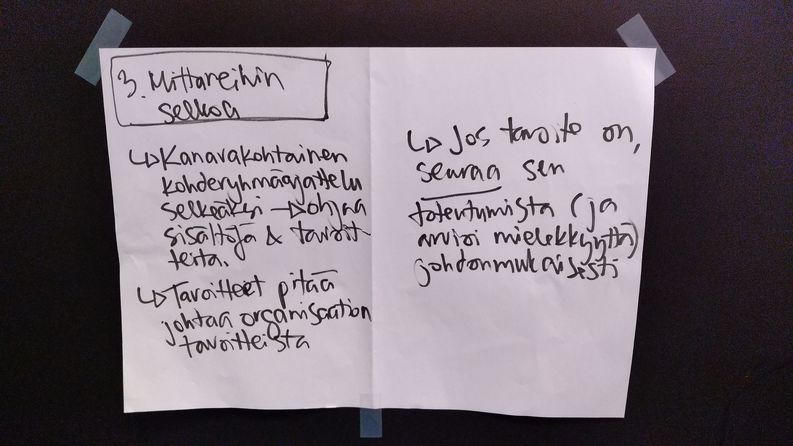 3. Mittareihin
selkoa
↳ Kanavakohtainen
kohderyhmäajattelu
selkeäksi → ohjaa
sisältöjä & tavoit-
teita.
↳ Tavoitteet pitää
johtaa organisaation
tavoitteista
↳ Jos tavoite on,
seuraa sen
toteutumista (ja
arvioi mielekkyyttä)
johdonmukaisesti